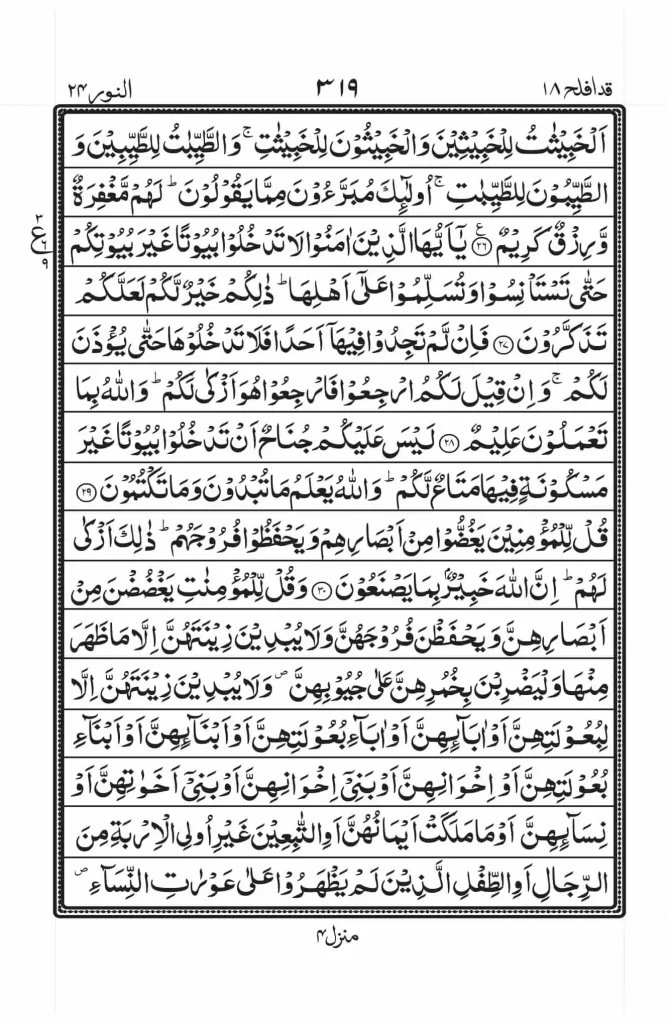 قد افلح ١٨
٣١٩
النور ٢٤
اَلْخَبِیْثٰتُ لِلْخَبِیْثِیْنَ وَالْخَبِیْثُوْنَ لِلْخَبِیْثٰتِ ۚ وَالطَّیِّبٰتُ لِلطَّیِّبِیْنَ وَ
الطَّیِّبُوْنَ لِلطَّیِّبٰتِ ۚ اُولٰٓئِكَ مُبَرَّءُوْنَ مِمَّا یَقُوْلُوْنَ ؕ لَهُمْ مَّغْفِرَةٌ
وَّرِزْقٌ كَرِیْمٌ ۧ﴿٢٦﴾ یٰۤاَیُّهَا الَّذِیْنَ اٰمَنُوْا لَا تَدْخُلُوْا بُیُوْتًا غَیْرَ بُیُوْتِكُمْ
٣ ع ٦ ٩
حَتّٰی تَسْتَاْنِسُوْا وَتُسَلِّمُوْا عَلٰۤی اَهْلِهَا ؕ ذٰلِكُمْ خَیْرٌ لَّكُمْ لَعَلَّكُمْ
تَذَكَّرُوْنَ ﴿٢٧﴾ فَاِنْ لَّمْ تَجِدُوْا فِیْهَاۤ اَحَدًا فَلَا تَدْخُلُوْهَا حَتّٰی یُؤْذَنَ
لَكُمْ ۚ وَاِنْ قِیْلَ لَكُمُ ارْجِعُوْا فَارْجِعُوْا هُوَ اَزْكٰی لَكُمْ ؕ وَاللّٰهُ بِمَا
تَعْمَلُوْنَ عَلِیْمٌ ﴿٢٨﴾ لَیْسَ عَلَیْكُمْ جُنَاحٌ اَنْ تَدْخُلُوْا بُیُوْتًا غَیْرَ
مَسْكُوْنَةٍ فِیْهَا مَتَاعٌ لَّكُمْ ؕ وَاللّٰهُ یَعْلَمُ مَا تُبْدُوْنَ وَمَا تَكْتُمُوْنَ ﴿٢٩﴾
قُلْ لِّلْمُؤْمِنِیْنَ یَغُضُّوْا مِنْ اَبْصَارِهِمْ وَیَحْفَظُوْا فُرُوْجَهُمْ ؕ ذٰلِكَ اَزْكٰی
لَهُمْ ؕ اِنَّ اللّٰهَ خَبِیْرٌۢ بِمَا یَصْنَعُوْنَ ﴿٣٠﴾ وَقُلْ لِّلْمُؤْمِنٰتِ یَغْضُضْنَ مِنْ
اَبْصَارِهِنَّ وَیَحْفَظْنَ فُرُوْجَهُنَّ وَلَا یُبْدِیْنَ زِیْنَتَهُنَّ اِلَّا مَا ظَهَرَ
مِنْهَا وَلْیَضْرِبْنَ بِخُمُرِهِنَّ عَلٰی جُیُوْبِهِنَّ ۪ وَلَا یُبْدِیْنَ زِیْنَتَهُنَّ اِلَّا
لِبُعُوْلَتِهِنَّ اَوْ اٰبَآىِٕهِنَّ اَوْ اٰبَآءِ بُعُوْلَتِهِنَّ اَوْ اَبْنَآىِٕهِنَّ اَوْ اَبْنَآءِ
بُعُوْلَتِهِنَّ اَوْ اِخْوَانِهِنَّ اَوْ بَنِیْۤ اِخْوَانِهِنَّ اَوْ بَنِیْۤ اَخَوٰتِهِنَّ اَوْ
نِسَآىِٕهِنَّ اَوْ مَا مَلَكَتْ اَیْمَانُهُنَّ اَوِ التّٰبِعِیْنَ غَیْرِ اُولِی الْاِرْبَةِ مِنَ
الرِّجَالِ اَوِ الطِّفْلِ الَّذِیْنَ لَمْ یَظْهَرُوْا عَلٰی عَوْرٰتِ النِّسَآءِ ۪
منزل ٤